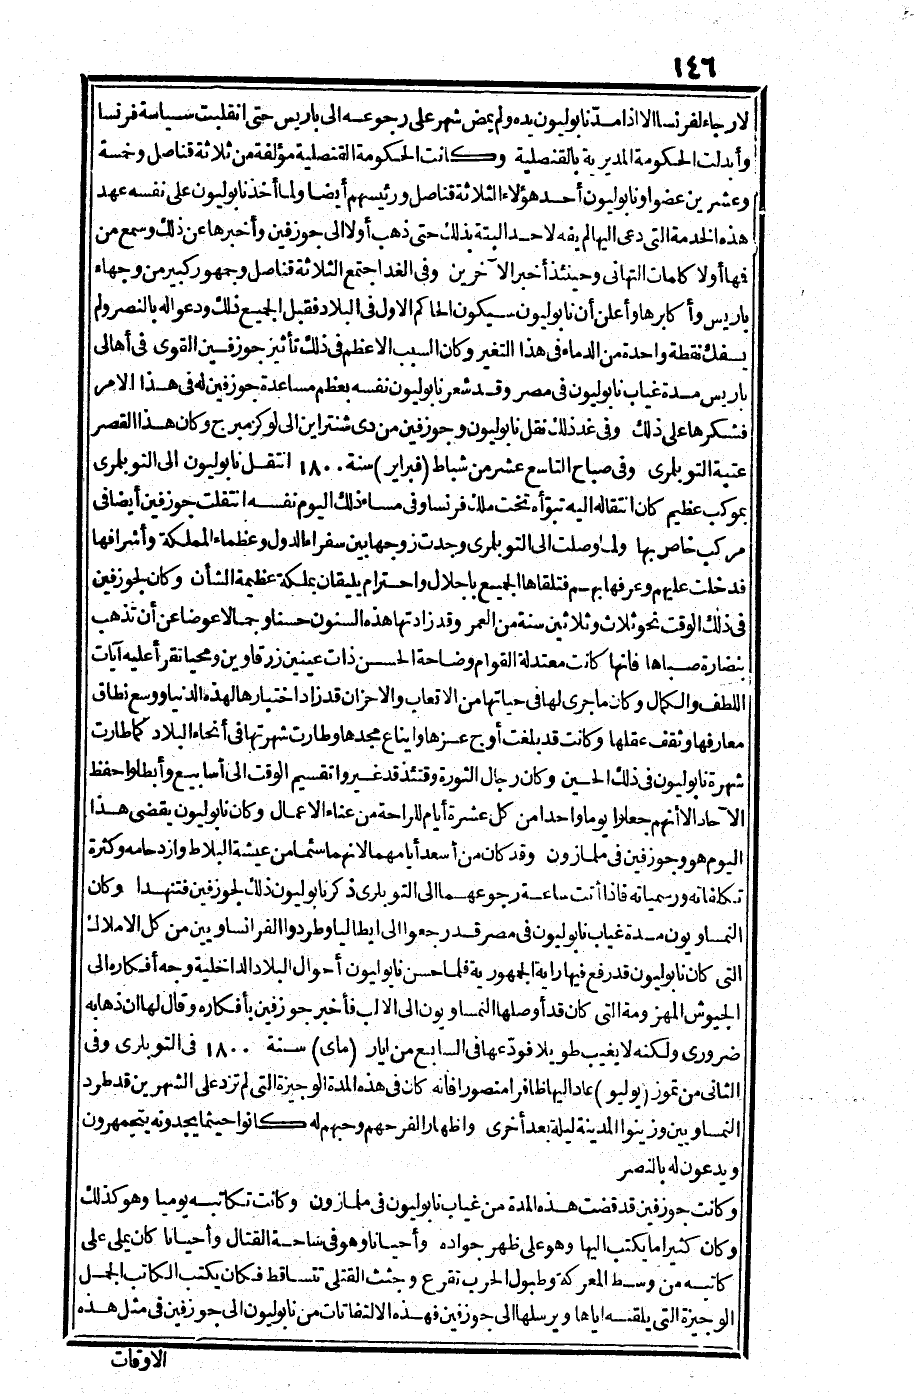 ١٤٦
لا رجاء لفرنسا الا اذا مدّ نابوليون يده ولم يمض شهر على رجوعه الى باريس حتى انقلبت سياسة فرنسا
وأبدلت الحكومة المديرية بالقنصلية وكانت الحكومة القنصلية مؤلفة من ثلاثة قناصل وخمسة
وعشرين عضوا ونابوليون أحد هؤلاء الثلاثة قناصل ورئيسهم أيضا ولما أخذ نابوليون على نفسه عهد
هذه الخدمة التى دعى اليها لم يفه لاحد البتة بذلك حتى ذهب أولا الى جوزفين وأخبرها عن ذلك وسمع من
فمها أولا كلمات التهانى وحينئذ أخبر الآخرين وفى الغد اجتمع الثلاثة قناصل وجمهور كبير من وجهاء
باريس وأكابرها وأعلن أن نابوليون سيكون الحاكم الاول فى البلاد فقبل الجميع ذلك ودعوا له بالنصر ولم
يسفك نقطة واحدة من الدماء فى هذا التغير وكان السبب الاعظم فى ذلك تأثير جوزفين القوى فى أهالى
باريس مدة غياب نابوليون فى مصر وقد شعر نابوليون نفسه بعظم مساعدة جوزفين له فى هذا الامر
فشكرها على ذلك وفى غد ذلك نقل نابوليون وجوزفين من دى شنترين الى لوكزمبرج وكان هذا القصر
عتبة التويلرى وفى صباح التاسع عشر من شباط (فبراير) سنة ١٨٠٠ انتقل نابوليون الى التويلرى
بموكب عظيم كان انتقاله اليه تبوأه تخت ملك فرنسا وفى مساء ذلك اليوم نفسه انتقلت جوزفين أيضا فى
مركب خاص بها ولما وصلت الى التويلرى وجدت زوجها بين سفراء الدول وعظماء المملكة وأشرافها
فدخلت عليهم وعرفها بهم فتلقاها الجميع باجلال واحترام يليقان بملكة عظيمة الشأن وكان لجوزفين
فى ذلك الوقت نحو ثلاث وثلاثين سنة من العمر وقد زادتها هذه السنون حسنا وجمالا عوضا عن أن تذهب
بنضارة صباها فانها كانت معتدلة القوام وضاحة الحسن ذات عينين زرقاوين ومحيا تقرأ عليه آيات
اللطف والكمال وكان ما جرى لها فى حياتها من الاتعاب والاحزان قد زاد اختبارها لهذه الدنيا ووسع نطاق
معارفها وثقف عقلها وكانت قد بلغت أوج عزها وايناع مجدها وطارت شهرتها فى أنحاء البلاد كما طارت
شهرة نابوليون فى ذلك الحين وكان رجال الثورة وقتئذ قد غيروا تقسيم الوقت الى أسابيع وأبطلوا حفظ
الآحاد الا أنهم جعلوا يوما واحدا من كل عشرة أيام للراحة من عناء الاعمال وكان نابوليون يقضى هذا
اليوم هو وجوزفين فى ملمازون وقد كان من أسعد أيامهما لانهما سئما من عيشة البلاط وازدحامه وكثرة
تكلفاته ورسمياته فاذا أتت ساعة رجوعهما الى التويلرى ذكر نابوليون ذلك لجوزفين فتنهدا وكان
النمساويون مدة غياب نابوليون فى مصر قد رجعوا الى ايطاليا وطردوا الفرانساويين من كل الاملاك
التى كان نابوليون قد رفع فيها راية الجمهورية فلما حسن نابوليون أحوال البلاد الداخلية وجه أفكاره الى
الجيوش المهزومة التى كان قد أوصلها النمساويون الى الالب فأخبر جوزفين بأفكاره وقال لها ان ذهابه
ضرورى ولكنه لا يغيب طويلا فودّعها فى السابع من ايار (ماى) سنة ١٨٠٠ فى التويلرى وفى
الثانى من تموز (يوليو) عاد اليها ظافرا منصورا فانه كان فى هذه المدة الوجيزة التى لم تزد على الشهرين قد طرد
النمساويين وزينوا المدينة ليلة بعد أخرى واظهارا لفرحهم وحبهم له كانوا حيثما يجدونه يتجمهرون
ويدعون له بالنصر
وكانت جوزفين قد قضت هذه المدة من غياب نابوليون فى ملمازون وكانت تكاتبه يوميا وهو كذلك
وكان كثيرا ما يكتب اليها وهو على ظهر جواده وأحيانا وهو فى ساحة القتال وأحيانا كان يملى على
كاتبه من وسط المعركة وطبول الحرب تقرع وجثث القتلى تتساقط فكان يكتب الكاتب الجمل
الوجيزة التى يلقنه اياها ويرسلها الى جوزفين فهذه الالتفاتات من نابوليون الى جوزفين فى مثل هذه
الاوقات